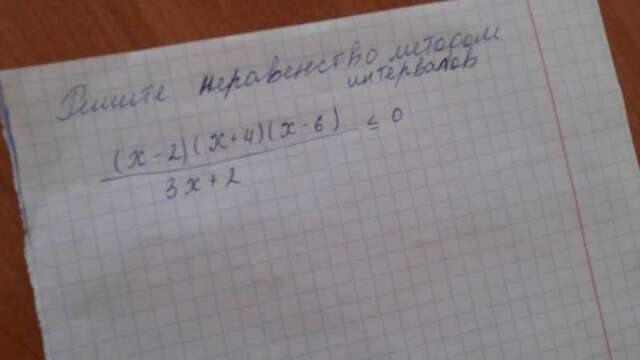 Решите неравенство методом
интервалов
(x-2)(x+4)(x-6) ≤ 0
3x+2